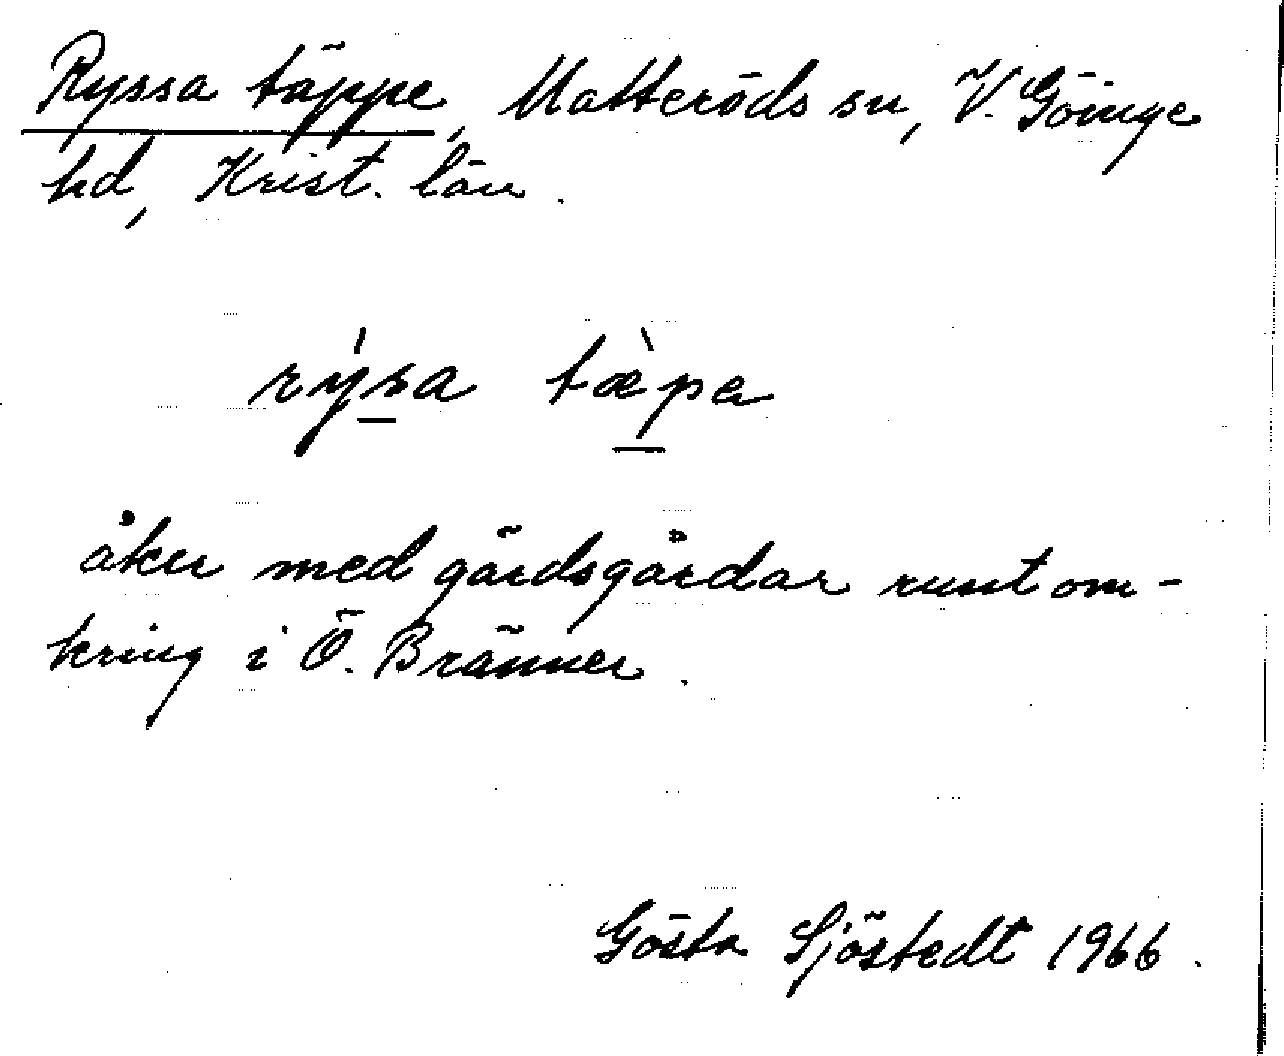 Ryssa täppe, Matteröds sn, V. Göinge
hd, Krist. län.
rýsa tæ̀pa
åker med gärdsgårdar runt om-
kring i Ö. Bränner.
Gösta Sjöstedt 1966.